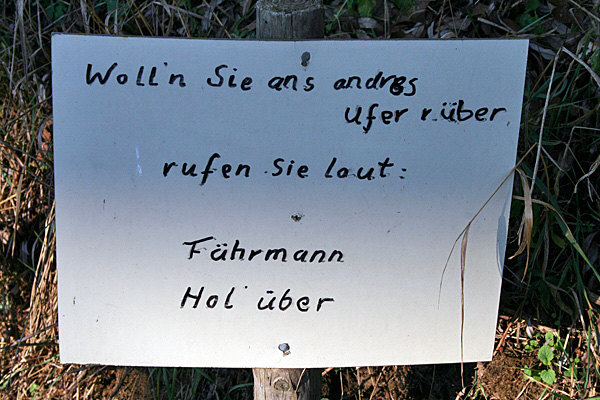 Woll'n Sie ans andres
Ufer rüber
rufen Sie laut:
Fährmann
Hol' über